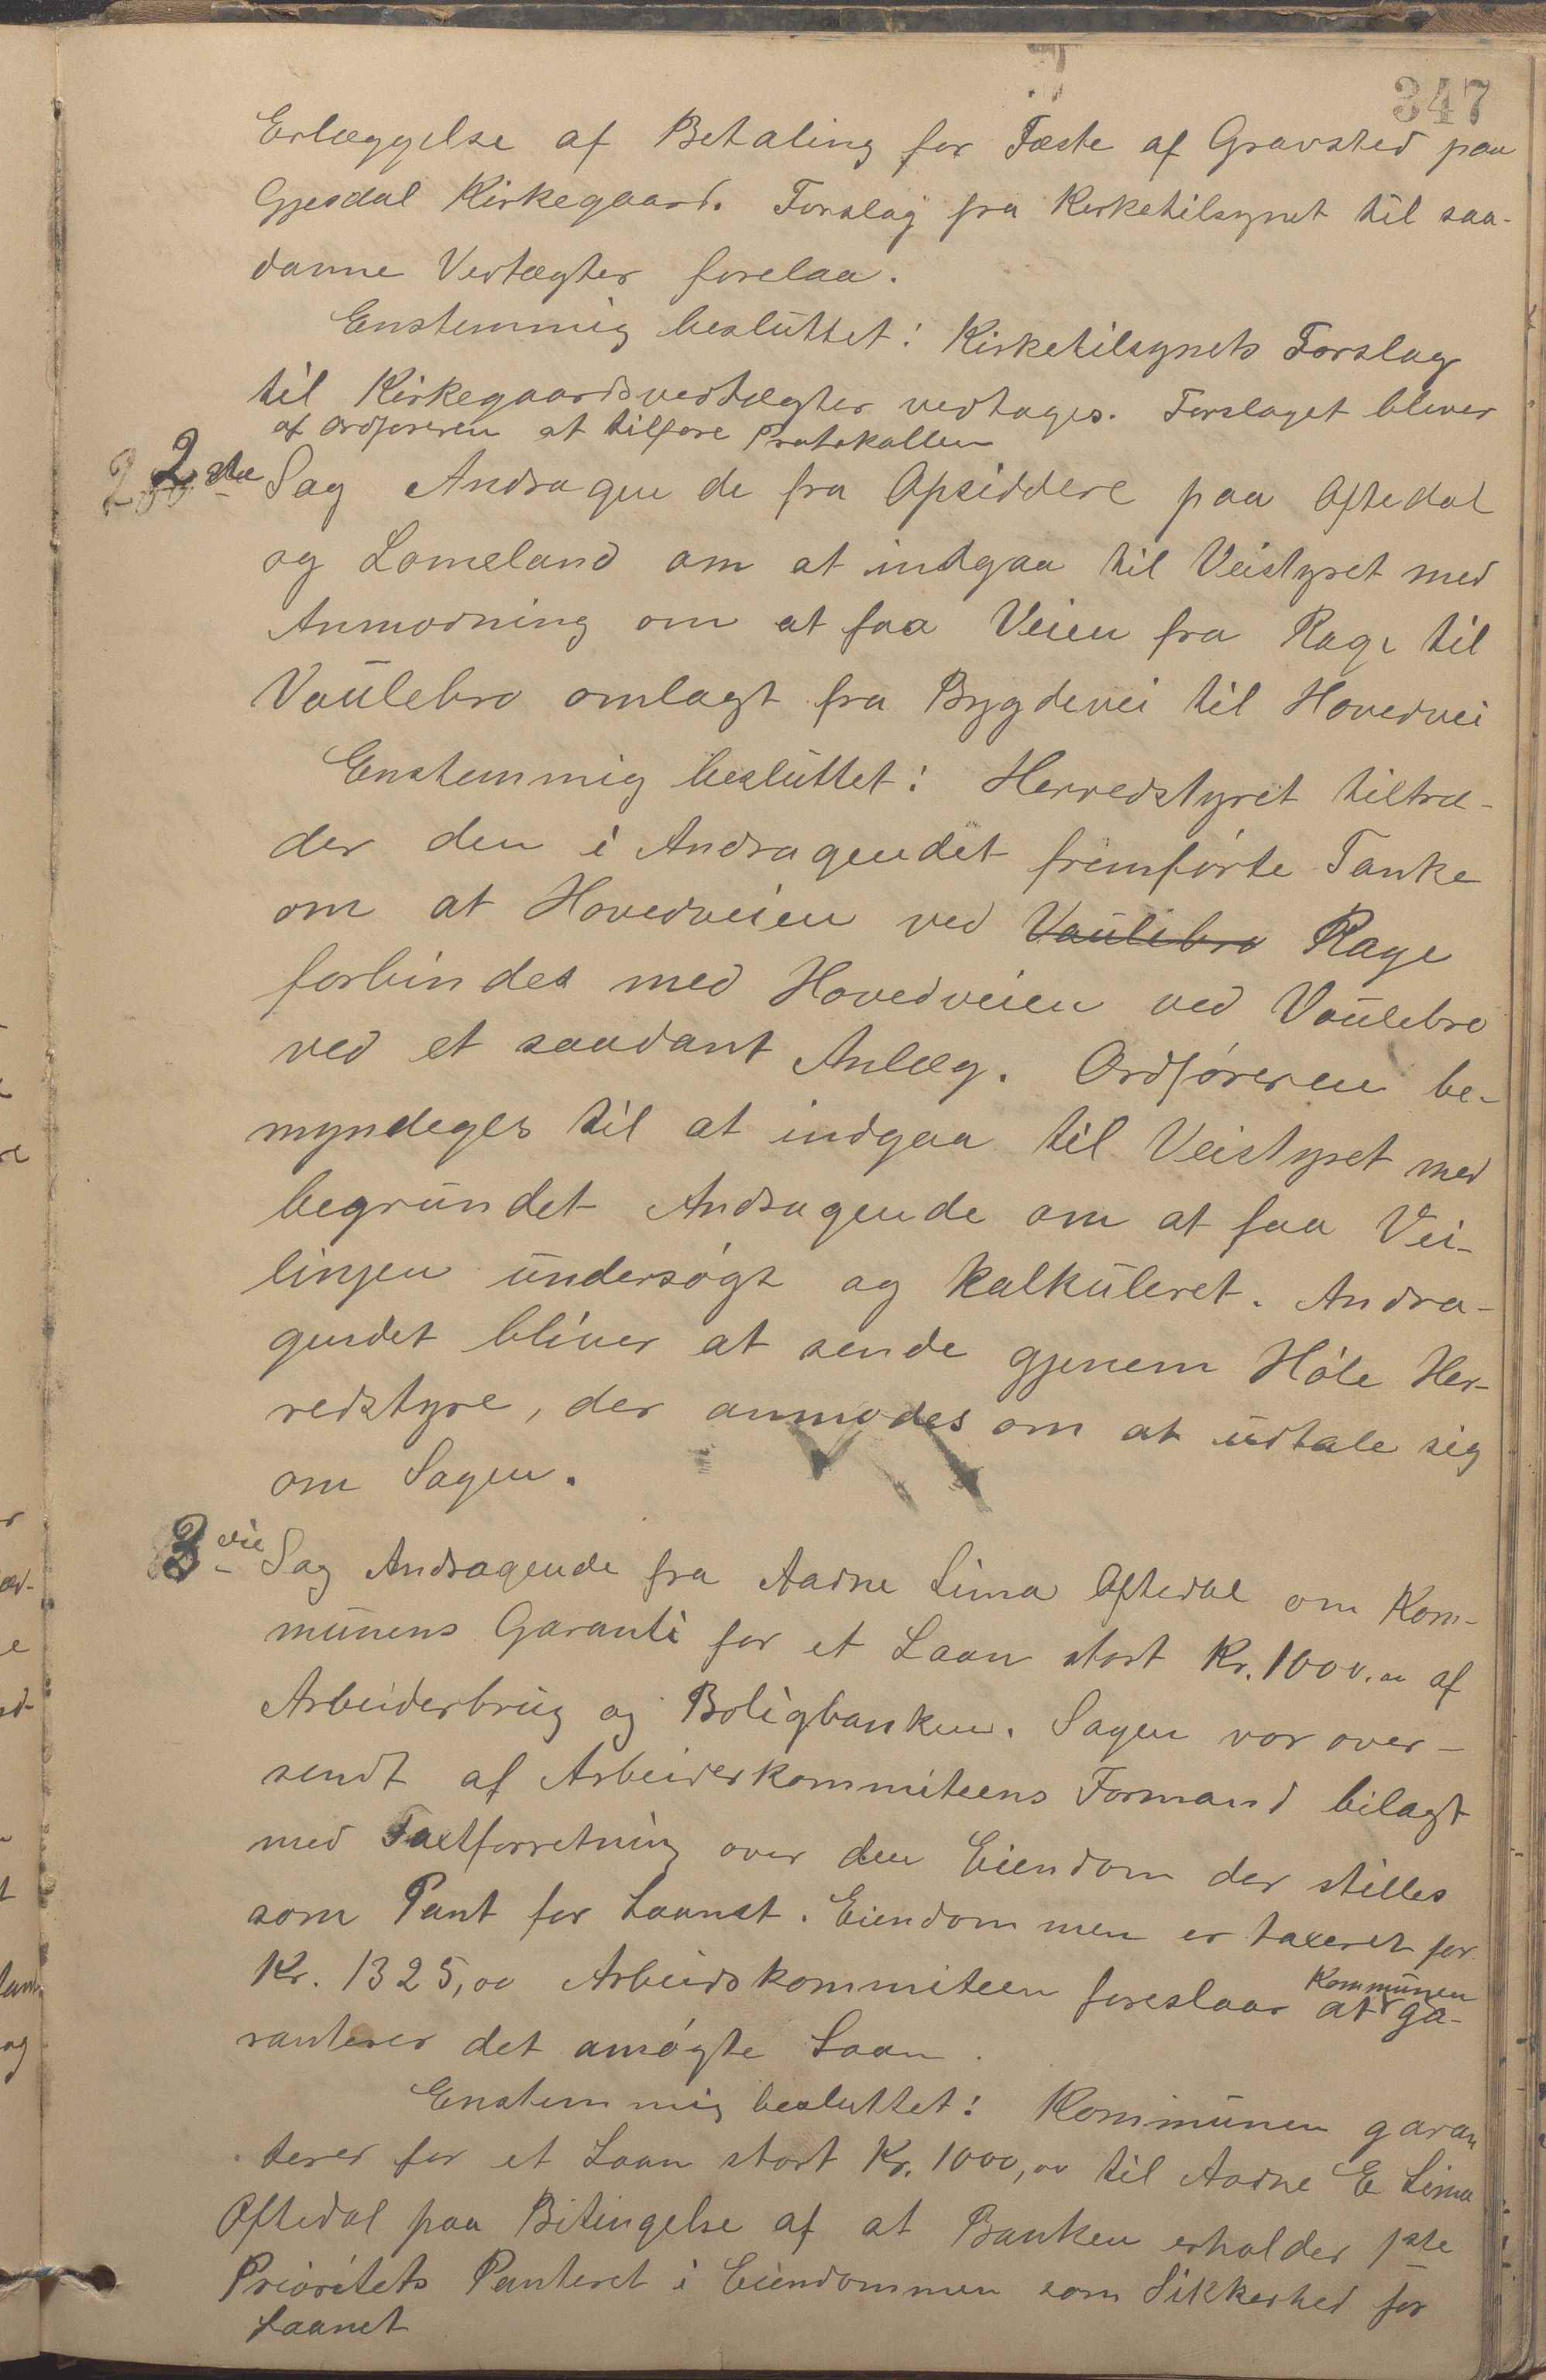 347
Erlæggelse af Betaling for Fæste af Gravsted paa
Gjesdal Kirkegaard. Forslag fra Kirketilsynet til saa-
danne Vedtægter forelaa.
Enstemmig besluttet: Kirketilsynets Forslag
til Kirkegaardsvedtægter vedtages. Forslaget bliver
af Ordføreren at tilføre Protokollen
2den Sag Andragende fra Opsiddere paa Oftedal
og Lomeland om at indgaa til Veistyret med
Anmodning om at faa Veien fra Rage til
Vaulebro omlagt fra Bygdevei til Hovedvei
Enstemmig besluttet: Herredstyret tiltræ-
der den i Andragendet fremførte Tanke
om at Hovedveien ved Vaulebro Rage
forbindes med Hovedveien ved Vaulebro
ved et saadant Anlæg. Ordføreren be-
myndeges til at indgaa til Veistyret med
begrundet Andragende om at faa Vei-
linjen undersøgt og kalkuleret. Andra-
gendet bliver at sende gjenem Høle Her-
redstyre, der anmodes om at udtale sig
om Sagen.
3die Sag Andragende fra Aadne Lima Oftedal om Kom-
munens Garanti for et Laan stort Kr. 1000.00 af
Arbeiderbrug og Boligbanken. Sagen var over-
sendt af Arbeiderkommiteens Formand bilagt
med Taxtforretning over den Eiendom der stilles
som Pant for Laanet. Eiendommen er taxeret for
Kr. 1325,00 Arbeidskommiteen foreslaar at Kommunen ga-
ranterer det ansøgte Laan.
Enstemmig besluttet: Kommunen garan
terer for et Laan stort Kr. 1000,00 til Aadne E Lima
Oftedal paa Bitingelse af at Banken erholder 1ste
Prioritets Panteret i Eiendommen som Sikkerhed for
Laanet